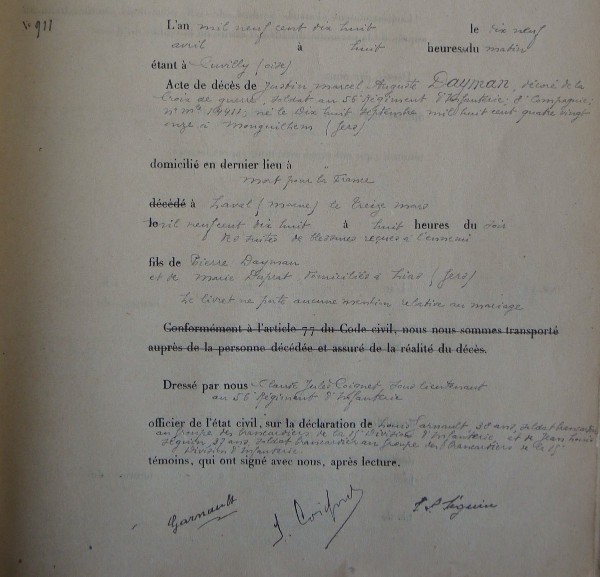 N° 911
L'an mil neuf cent dix huit le dix neuf
avril à huit heures du matin
étant à Cuvilly (oise)
Acte de décès de Justin, Marcel, Auguste DAYMAN, décoré de la
Croix de guerre, soldat au 56e Régiment d'Infanterie, Compagnie;
n° Mle né le Dix huit septembre mil huit cent quatre vingt
onze à Monguilhem (Gers)
domicilié en dernier lieu à
mort pour la France
décédé à Laval (Marne) le treize mars
mil neuf cent dix huit à huit heures du soir
des suites de blessures reçues à l'ennemi
fils de Pierre Dayman
et de Marie Duprat domiciliés à (Gers)
Le livret ne porte aucune mention relative au mariage
Conformément à l'article 77 du Code civil, nous nous sommes transporté
auprès de la personne décédée et assuré de la réalité du décès.
Dressé par nous Claude Jules Coignet, sous lieutenant
au 56e Régiment d'Infanterie
officier de l'état civil, sur la déclaration de Louis Garnault, 30 ans, soldat brancardier
au groupe des brancardiers de la 15e Division d'Infanterie, et de Jean Louis
Séguin, 37 ans, soldat brancardier au groupe des brancardiers de la 15e
Division d'Infanterie
témoins, qui ont signé avec nous, après lecture.
Garnault J. Coignet Séguin